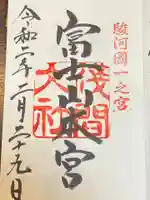 駿河國一之宮
富士山本宮
浅間
大社
令和二年二月二十九日